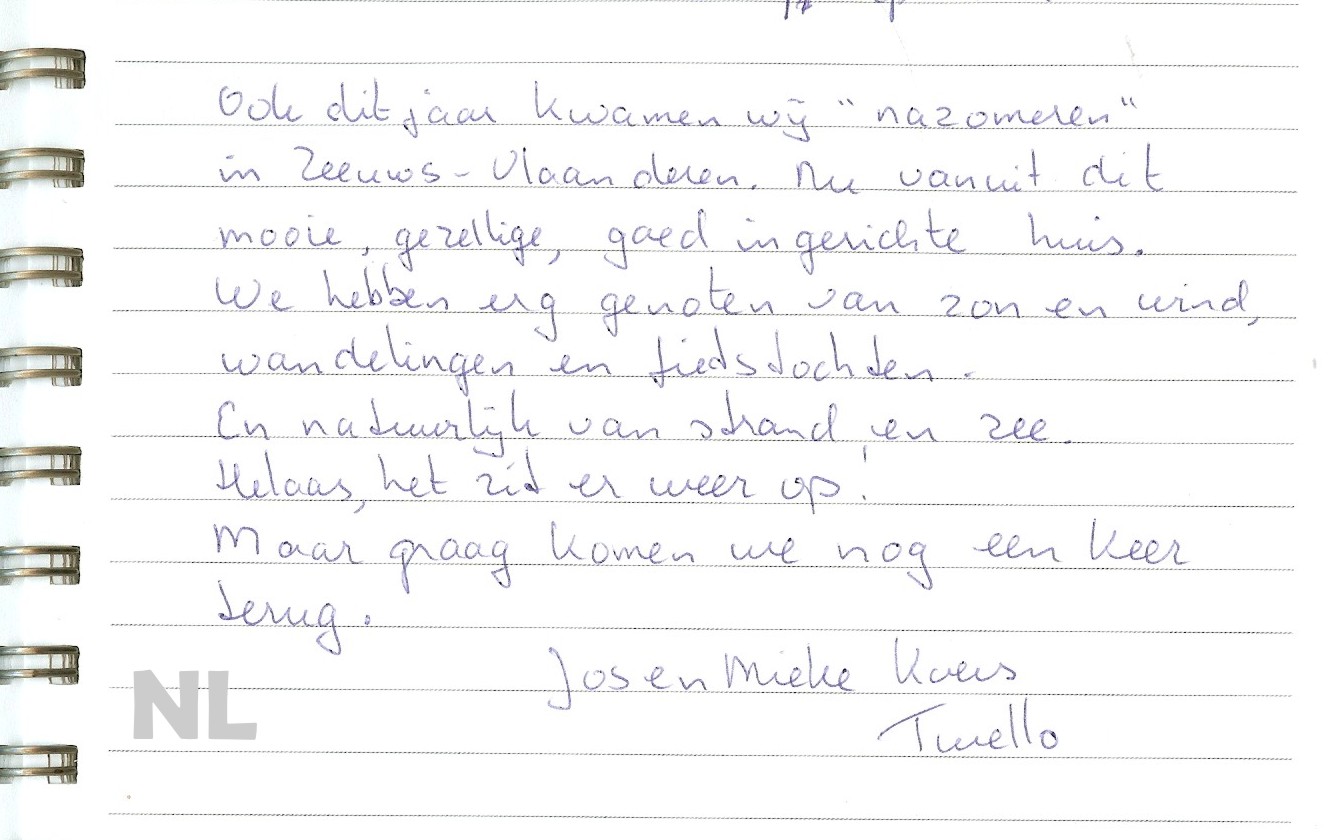 Ook dit jaar kwamen wij "nazomeren"
in Zeeuws-Vlaanderen. Nu vanuit dit
mooie, gezellige, goed ingerichte huis.
We hebben erg genoten van zon en wind,
wandelingen en fietstochten.
En natuurlijk van strand en zee.
Helaas, het zit er weer op!
Maar graag komen we nog een keer
terug.
Jos en Mieke
Twello
NL